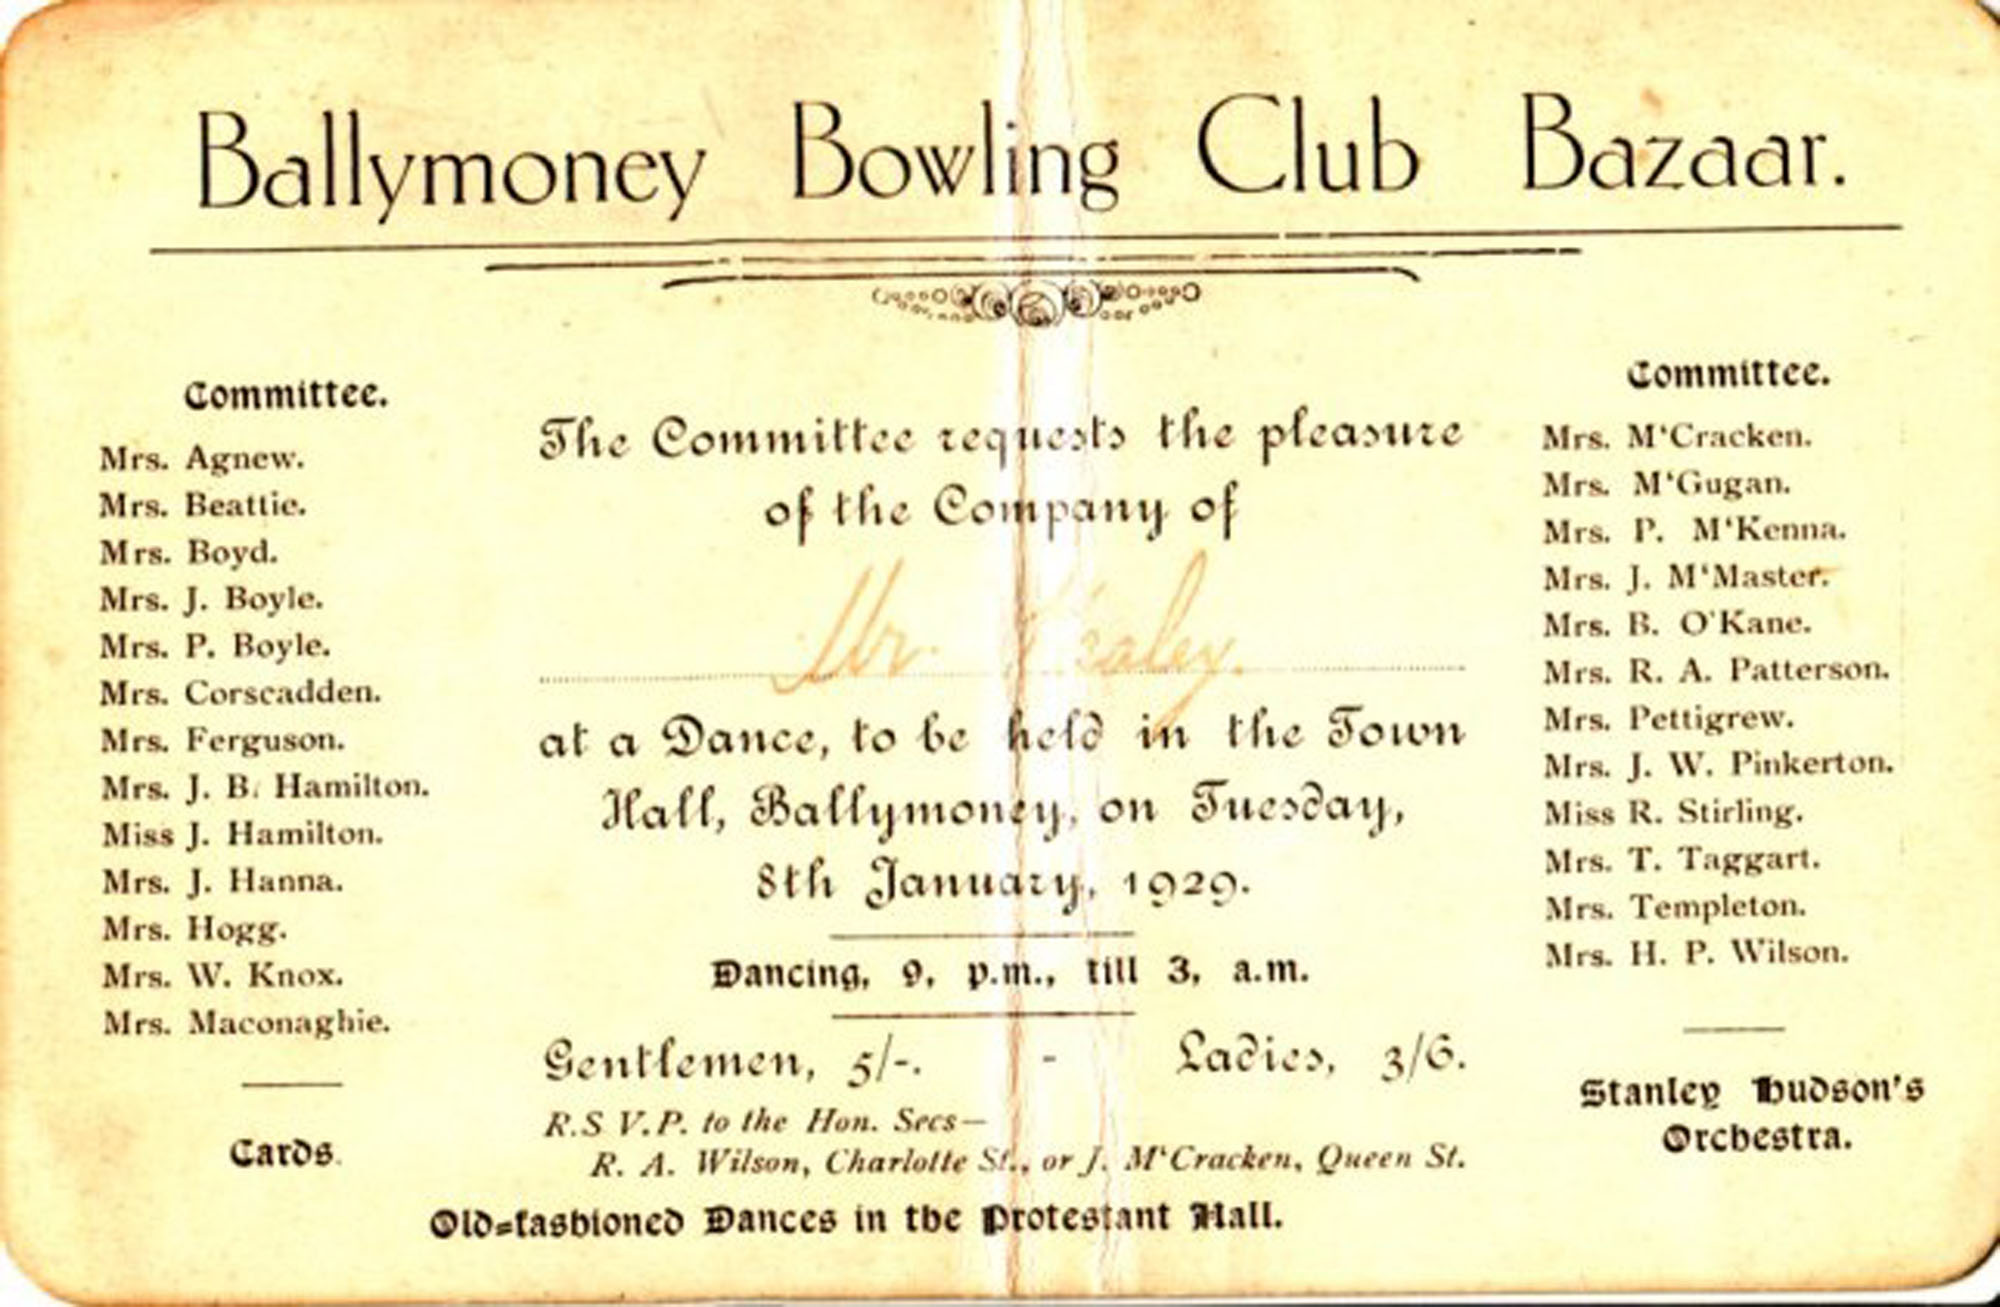 Ballymoney Bowling Club Bazaar.
Committee.
Mrs. Agnew.
Mrs. Beattie.
Mrs. Boyd.
Mrs. J. Boyle.
Mrs. P. Boyle.
Mrs. Corscadden.
Mrs. Ferguson.
Mrs. J. B. Hamilton.
Miss J. Hamilton.
Mrs. J. Hanna.
Mrs. Hogg.
Mrs. W. Knox.
Mrs. Maconaghie.
Cards.
The Committee requests the pleasure
of the Company of
Mr.
at a Dance, to be held in the Town
Hall, Ballymoney, on Tuesday,
8th January, 1929.
Dancing, 9, p.m., till 3, a.m.
Gentlemen, 5/-. - Ladies, 3/6.
R.S V.P. to the Hon. Secs—
R. A. Wilson, Charlotte St., or J. M‘Cracken, Queen St.
Committee.
Mrs. M‘Cracken.
Mrs. M‘Gugan.
Mrs. P. M‘Kenna.
Mrs. J. M‘Master.
Mrs. B. O'Kane.
Mrs. R. A. Patterson.
Mrs. Pettigrew.
Mrs. J. W. Pinkerton.
Miss R. Stirling.
Mrs. T. Taggart.
Mrs. Templeton.
Mrs. H. P. Wilson.
Stanley Hudson's
Orchestra.
Old=fashioned Dances in the Protestant Hall.